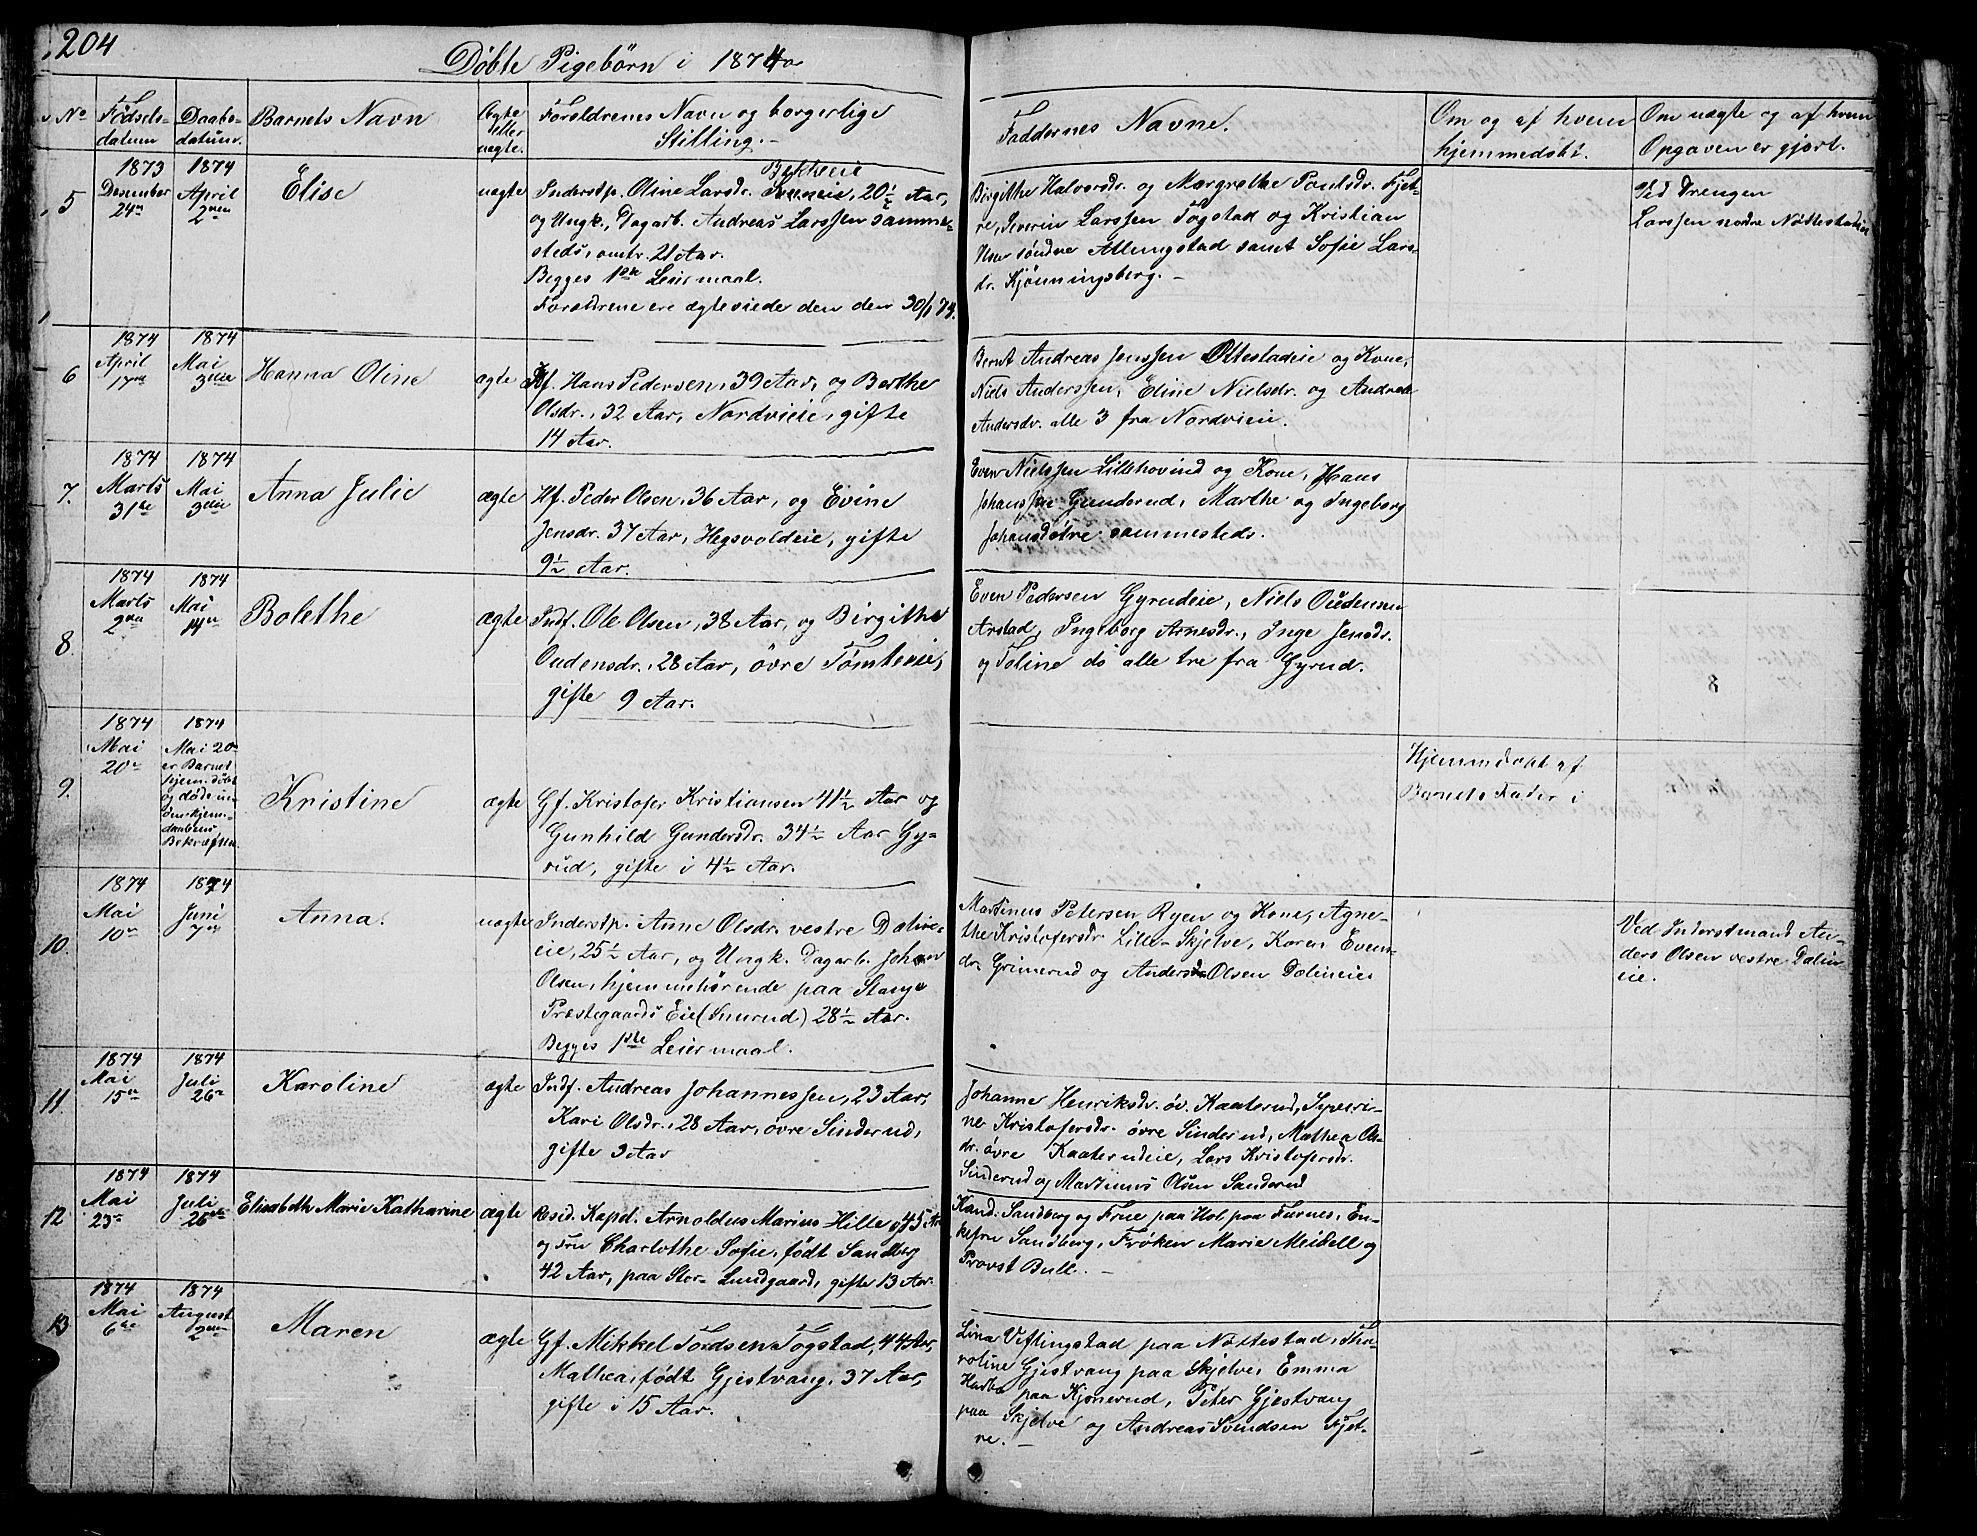 204
Døbte Pigebørn i 1874
No
Fødsels-
datum
Daabs-
datum.
Barnets Navn
Ægte
eller
uægte.
Forældrenes Navn og borgerlige
Stilling.
Faddernes Navne.
Om og af hvem
hjemmedøbt.
Om uægte og af hvem
Opgaven er gjort.
5
1873
Desember
24
1874
April
2
Elise
uægte
Inderstp. Oline Larsdr. 20½ Aar,
og Ungk., Dagarb. Andreas Larssen samme-
steds, omtr. 21 Aar.
Begges 1ste Leiermaal.
Forældrene ere ægteviede den den 30/1 74.
Birgithe Halvorsdr. og Margrethe Paulsdr. Fjet-
re, Severin Larssen Togstad og Kristian
søndre Allengstad samt Sofie Lars-
dr. Kjønningsberg. -
Ved Drengen
Larssen nordre Nøttestadeie
6
1874
April
17
1874
Mai
3die
Hanna Oline
ægte
Hf. Hans Pedersen, 39 Aar, og Berthe
Olsdr., 32 Aar, Nordvieie, gifte
14 Aar.
Bernt Andreas Jenssen Ottestadeie og Kone,
Niels Anderssen, Eline Nielsdr. og Andrea
Andersdr. alle 3 fra Nordvieie.
7.
1874
Marts
31te
1874
Mai
3die
Anna Julie
ægte
Hf. Peder Olsen, 36 Aar, og Evine
Jensdr. 37 Aar, Hegsvoldeie, gifte
9½ Aar.
Even Nielssen Lillehovind og Kone, Hans
Johanssen Gunderud, Marthe og Ingeborg
Johansdøtre sammesteds.
8.
1874
Marts
2den
1874
Mai
14
Bolethe
ægte
Indf. Ole Olsen, 38 Aar, og Birgithe
Oudensdr., 28 Aar, øvre Tømteeie,
gifte 9 Aar.
Even Pedersen Gyrudeie, Niels Oudensen
Arstad, Ingeborg Arnesdr., Inge Jensdr.
og Toline do alle tre fra Gyrud.
9.
1874
Mai
20
1874
Mai 20
er Barnet
hjem. døbt
og døde in-
den hjem.
daabens
Bekræftelse
Kristine
ægte
Gf. Kristofer Kristiansen 41½ Aar og
Gunhild Gundersdr. 34½ Aar Gy-
rud, gifte i 4½ Aar.
Hjemmedøbt af
Barnets Fader i
10.
1874
Mai
10
1874
Juni
7
Anna.
uægte
Inderstp. Anne Olsdr. vestre Dølin-
eie, 25½ Aar, og Ungk. Dagarb. Johan
Olsen, hjemmehørende paa Stange
Præstegaards Eie (Snurud) 28½ Aar.
Begges 1ste Leiermaal.
Martinus Petersen Ryen og Kone, Agne-
the Kristofersdr. Lille-Skjelve, Karen Evens-
dr. Grimerud og Anders Olsen Dølineie
Ved Inderstmand An-
ders Olsen vestre Dølin-
eie.
11.
1874
Mai
15
1874
Juli
26
Karoline
ægte
Indf. Andreas Johannessen, 23 Aar,
Kari Olsdr., 28 Aar, øvre Sinderud,
gifte 3 Aar
Johanne Henriksdr. øv. Kaaterud, Syveri-
ne Kristofersdr. øvre Sinderud, Mathea Ols-
dr. øvre Kaaterudeie, Lars Kristofersdr.
Sinderud og Martinus Olsen Sanderud
12
1874
Mai
23
1874
Juli
26
Elisabeth Marie Katharine
ægte
Resid. Kapel. Arnoldus Marius Hille 45 Aar
og Fru Charlothe Sofie, født Sandberg
42 Aar, paa Stor-Lundgaard, gifte 13 Aar.
Kand. Sandberg og Frue paa Hol paa Furnes, En-
kefru Sandberg, Frøken Marie Meidell og
Provst Bull. -
13
1874
Mai
6te
1874
August
2
Maren
ægte
Gf. Mikkel Tordsen Togstad, 44 Aar,
Mathea, født Gjestvang, 37 Aar,
gifte i 15 Aar.
Lina Viflingstad paa Nøttestad, Tho-
roline Gjestvang paa Skjelve, Emma
paa Kjonerud, Peter Gjestvang
paa Skjelve og Andreas Svendsen Fjet-
re. -